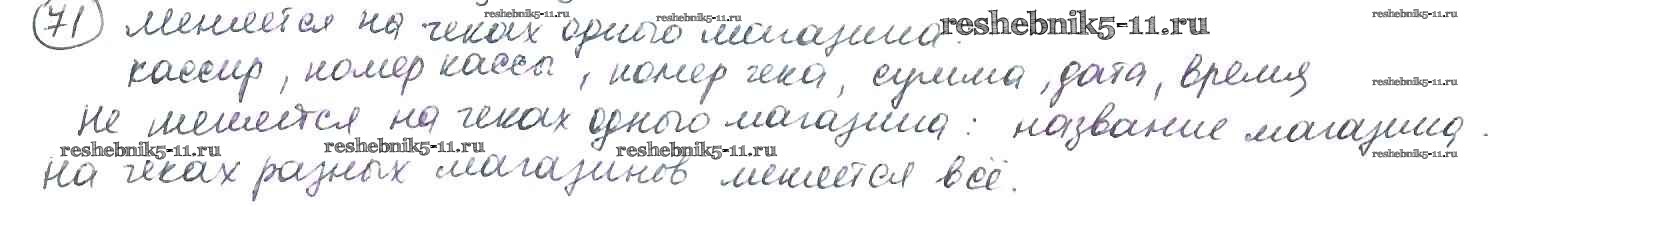 71 меняется на чеках одного магазина:
кассир, номер кассы, номер чека, сумма, дата, время
не меняется на чеках одного магазина: название магазина.
на чеках разных магазинов меняется всё.
reshebnik5-11.ru
reshebnik5-11.ru
reshebnik5-11.ru
reshebnik5-11.ru
reshebnik5-11.ru
reshebnik5-11.ru
reshebnik5-11.ru
reshebnik5-11.ru
reshebnik5-11.ru